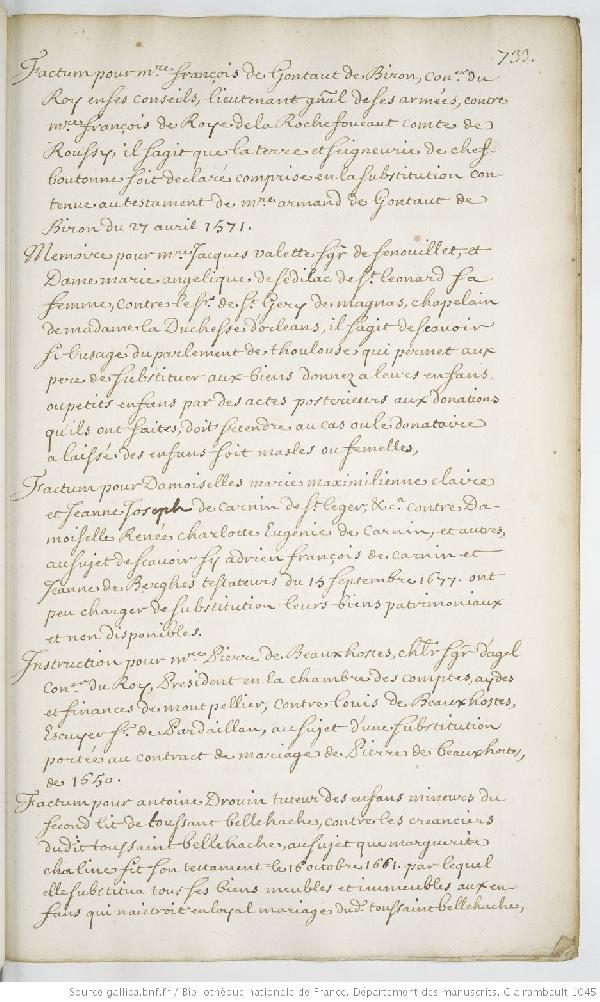 733.
Factum pour mre françois de Gontaut de Biron, coner du
Roy enses conseils, lieutenant gñal deses armées, contre
mre françois de Roye dela Rochefoucaut comte de
Roussy, il sagit que la terre et seigneurie de chef-
boutonne soit declaré comprise en la substitution con-
tenue au testament de mre armand de Gontaut de
Biron du 27 avril 1571.
Memoire pour mre Jacques valette sgr de fenouillet, et
Dame marie angelique de sedilac de st leonard sa
femme, contre le sr de st Gery de magnas, chapelain
de madame la Duchesse dorleans, il sagit de scavoir
si lusage du parlement de thoulouse qui permet aux
pere de substituer aux biens donnez a leurs enfans,
ou petits enfans par des actes posterieurs aux donations
qu'ils ont faites, doit setendre au cas ou le donataire
a laissé des enfans soit masles ou femelles,
Factum pour Damoiselles marie maximilienne claire
et Jeanne Joseph de carnin de st leger, &ca contre Da-
moiselle Renée charlotte Eugenie de Carnin, et autres,
au sujet de scavoir sy adrien françois de carnin et
Jeanne de Berghes testateurs du 15 septembre 1677. ont
peu charger de substitution leurs biens patrimoniaux
et non disponibles.
Instruction pour mre Pierre de Beauxhostes, chlr sgr dagel
Coner du Roy, President en la chambre des comptes, aydes
et finances de montpellier, contre louis de Beauxhostes,
Escuyer sr. de Pardaillan, au sujet d'une substitution
portée au contract de mariage de Pierre de beauxhostes,
de 1650.
Factum pour antoine Drouin tuteur des enfans mineurs du
second lit de toussant bellehache, contre les creanciers
dudit toussaint bellehache, au sujet que marguerite
chaline fit son testament le 16 octobre 1661. par lequel
elle substitua tous ses biens meubles et immeubles aux en-
fans qui naitroit en loyal mariage dud. toussaint bellehache,
Source gallica.bnf.fr / Bibliothèque nationale de France. Département des manuscrits. Clairambault 1045